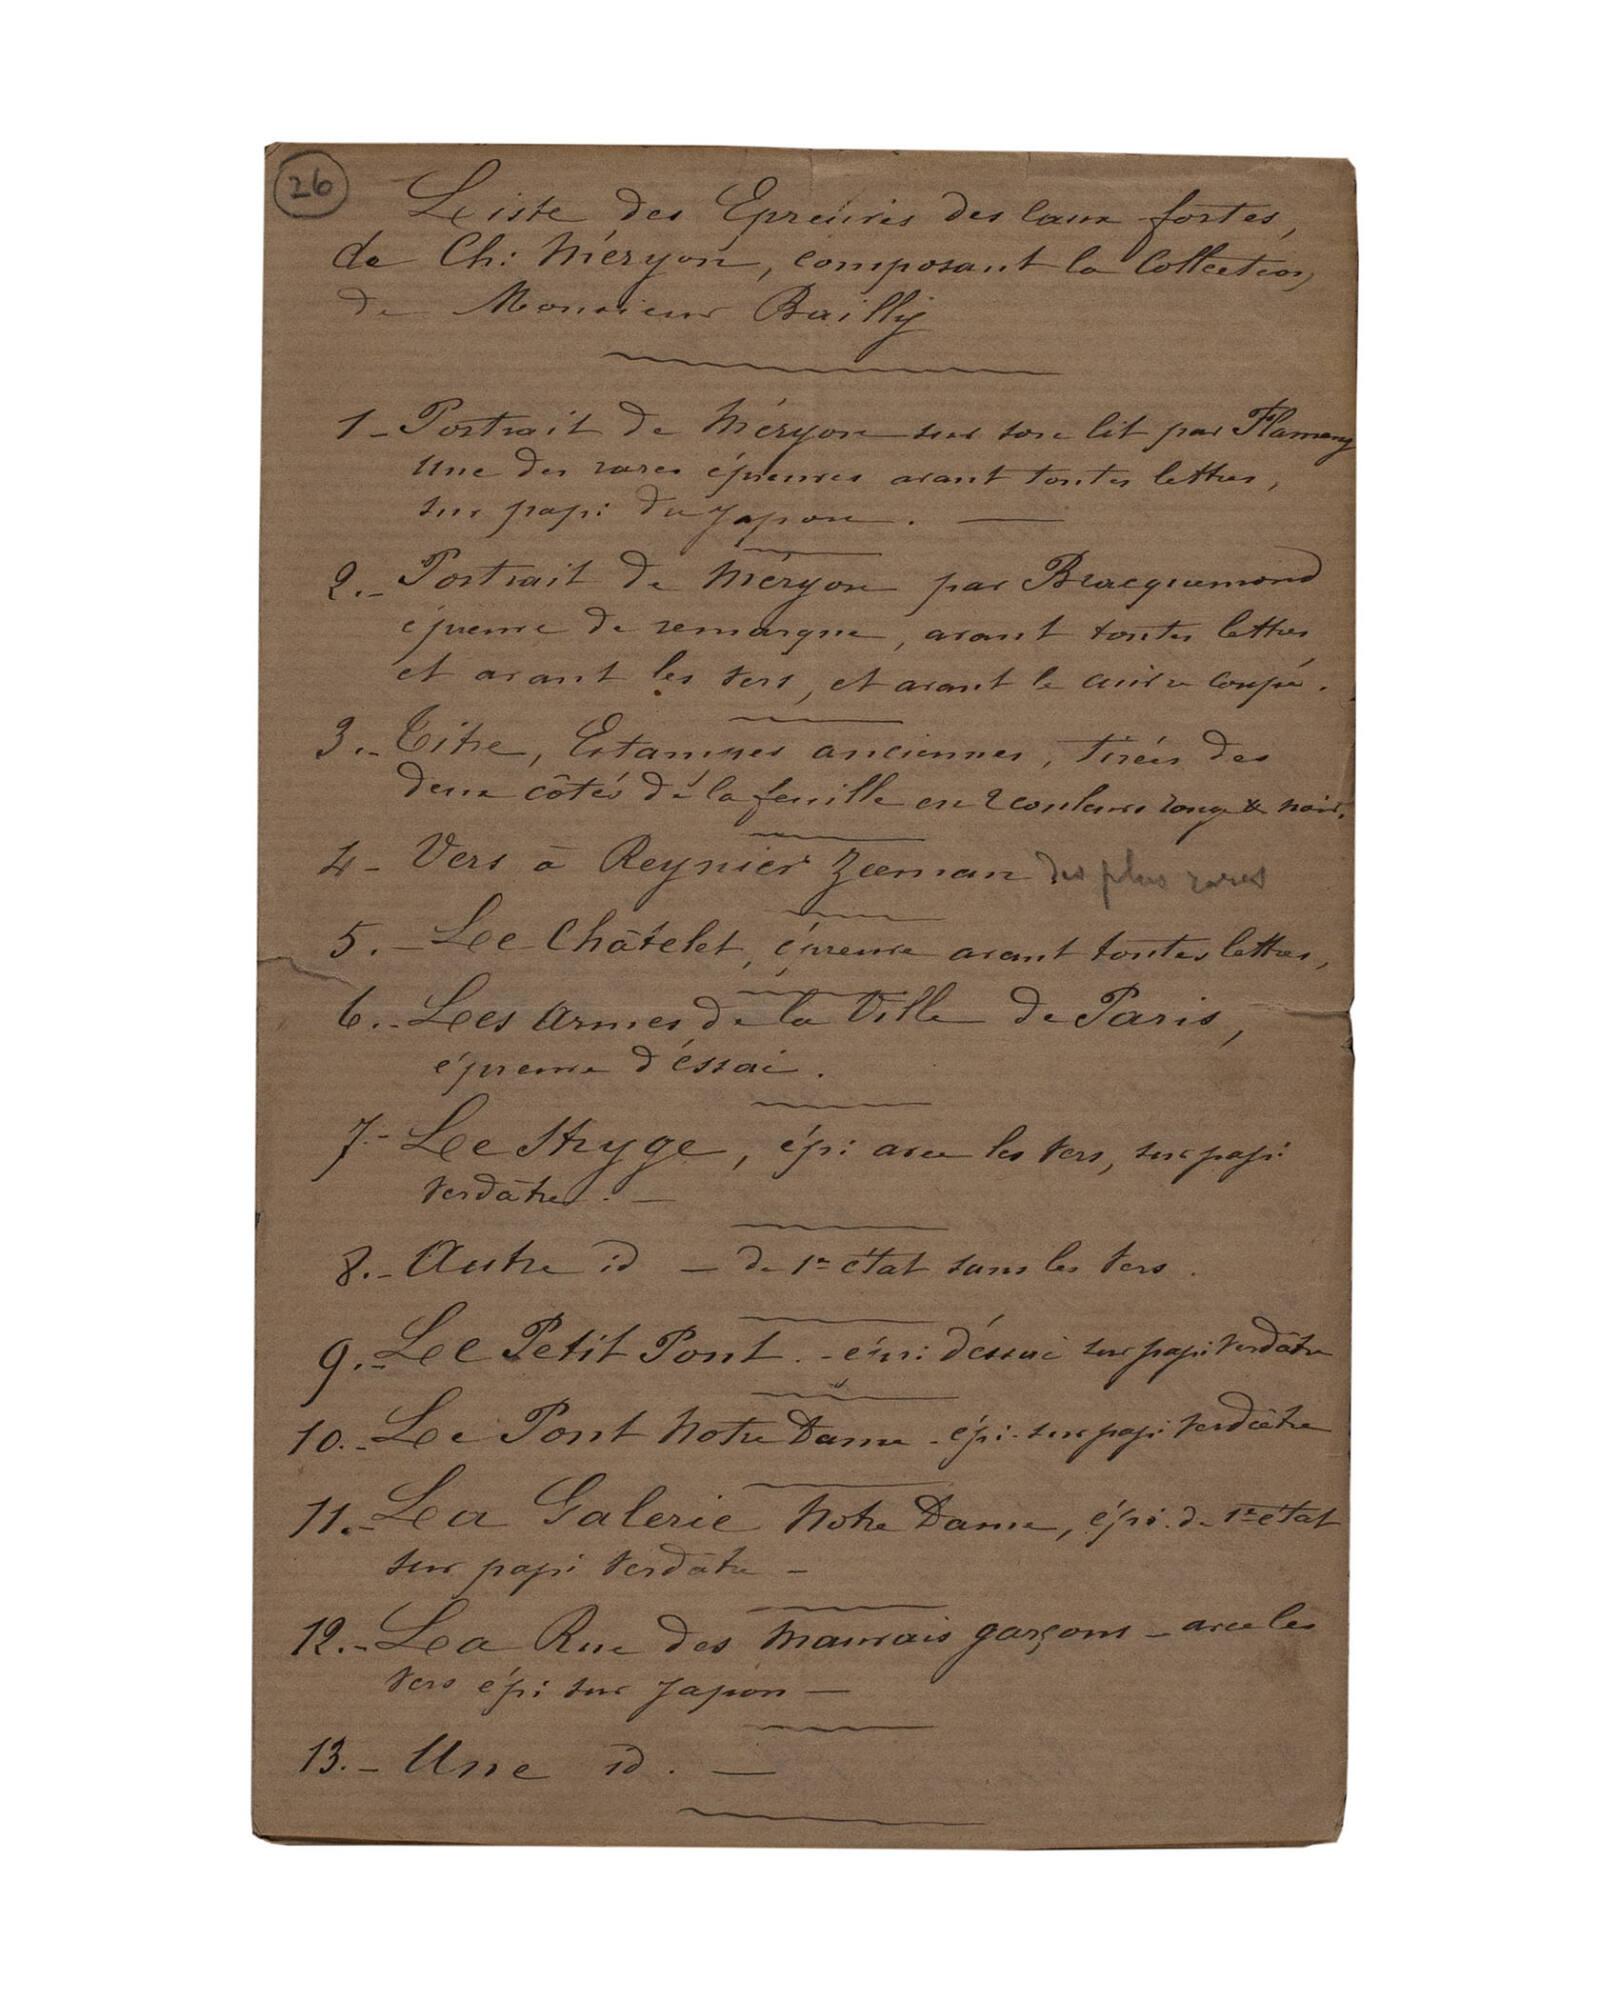 26
Liste des Epreuves des Eaux fortes,
de Ch: Méryon, composant la Collection
de Monsieur Bailly
1 - Portrait de Méryon sur son lit par Flameng
Une des rares épreuves avant toutes lettres,
sur papi: du Japon. —
2. - Portrait de Méryon par Bracquemond
épreuve de remarque, avant toutes lettres
et avant les vers, et avant le cuivre coupé.
3. - Titre, Estampes anciennes, tirées des
deux côtés dé la feuille en 2 couleurs rouge & noir.
4 - Vers à Reynier Zeeman des plus rares
5. - Le Châtelet, épreuve avant toutes lettres,
6. - Les Armes de la Ville de Paris,
épreuve d'éssai.
7 - Le Stryge, épr: avec les vers, sur papi:
verdâtre. —
8. - Autre id — de 1er état sans les vers.
9. - Le Petit Pont. - épr: déssai sur papi: verdâtre
10. - Le Pont Notre Dame - épr: sur papi: verdâtre
11. - La Galerie Notre Dame, épr. de 1er état
sur papi: verdâtre -
12. - La Rue des Mauvais garçons - avec les
vers épr: sur Japon —
13. - Une id. —